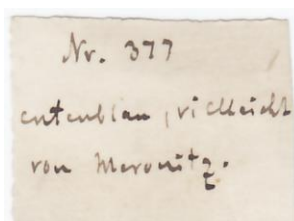 Nr. 377
entenblau, vielleicht
von Meronitz.